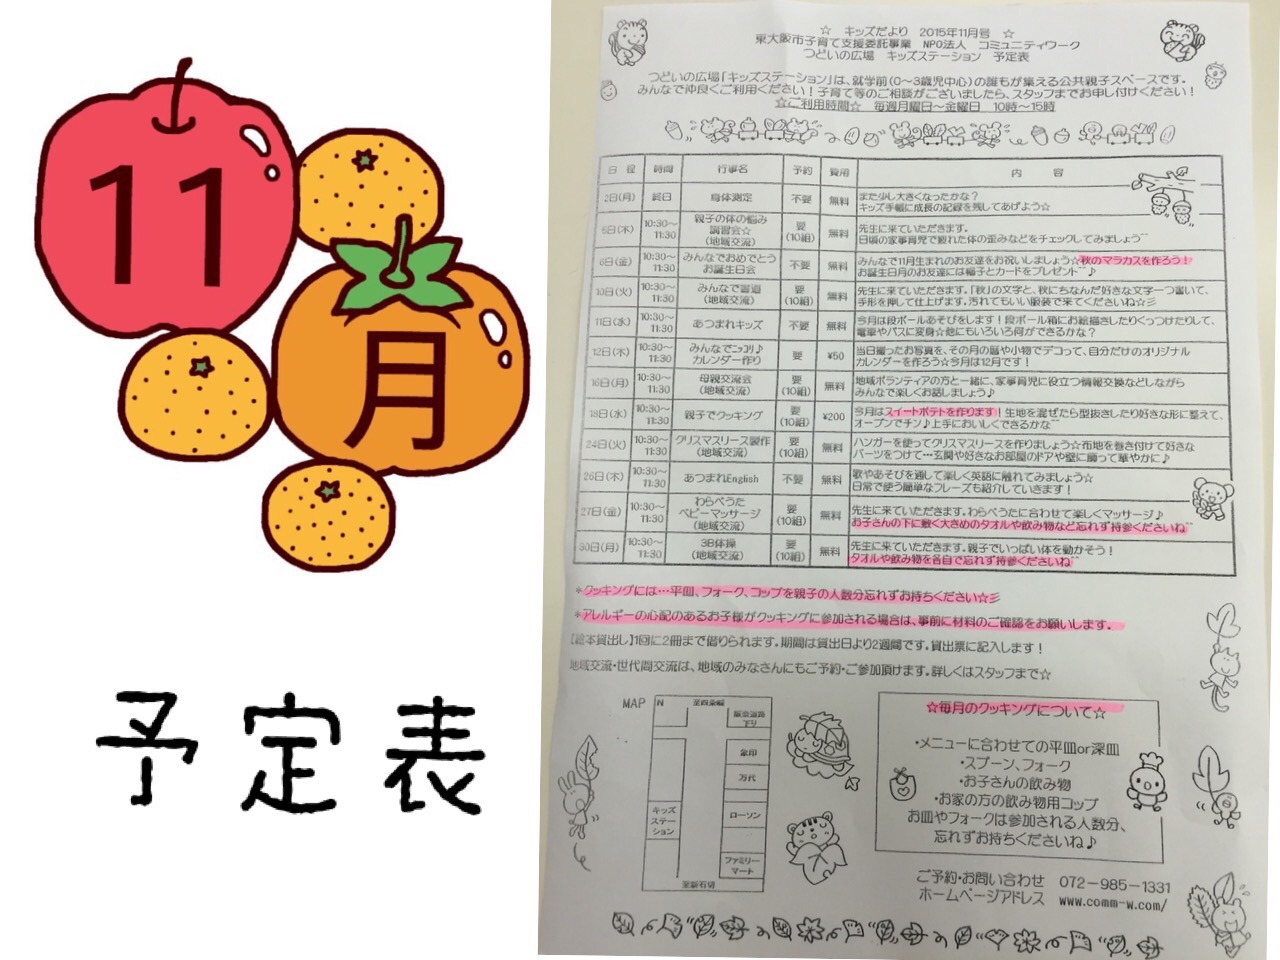 11
月
予定表
☆ キッズだより 2015年11月号 ☆
東大阪市子育て支援委託事業 NPO法人 コミュニティワーク
つどいの広場 キッズステーション 予定表
つどいの広場「キッズステーション」は、就学前(0～3歳児中心)の誰もが集える公共親子スペースです。
みんなで仲良くご利用ください!子育て等のご相談がございましたら、スタッフまでお申し付けください!
☆ご利用時間☆ 毎週月曜日～金曜日 10時～15時
日程 時間 行事名 予約 費用 内容
2日(月) 終日 身体測定 不要 無料 また少し大きくなったかな?
キッズ手帳に成長の記録を残してあげよう☆
5日(木) 10:30～11:30 親子の体の悩み講習会☆(地域交流) 要(10組) 無料 先生に来ていただきます。
日頃の家事育児で疲れた体の歪みなどをチェックしてみましょう
6日(金) 10:30～11:30 みんなでおめでとうお誕生日会 不要 無料 みんなで11月生まれのお友達をお祝いしましょう☆秋のマラカスを作ろう!
お誕生日月のお友達には帽子とカードをプレゼント♪
10日(火) 10:30～11:30 みんなで書道(地域交流) 要(10組) 無料 先生に来ていただきます。「秋」の文字と、秋にちなんだ好きな文字一つ書いて、
手形を押して仕上げます。汚れてもいい服装で来てくださいね☆彡
11日(水) 10:30～11:30 あつまれキッズ 不要 無料 今月は段ボールあそびをします!段ボール箱にお絵描きしたりくっつけたりして、
電車やバスに変身☆他にもいろいろ何ができるかな?
12日(木) 10:30～11:30 みんなでニッコリ♪カレンダー作り 要 ¥50 当日撮ったお写真を、その月の暦や小物でデコって、自分だけのオリジナル
カレンダーを作ろう☆今月は12月です!
16日(月) 10:30～11:30 母親交流会(地域交流) 要(10組) 無料 地域ボランティアの方と一緒に、家事育児に役立つ情報交換などしながら
みんなで楽しくお話しましょう♪
18日(水) 10:30～11:30 親子でクッキング 要(10組) ¥200 今月はスイートポテトを作ります!生地を混ぜたら型抜きしたり好きな形に整えて、
オーブンでチン♪上手においしくできるかな
24日(火) 10:30～11:30 クリスマスリース製作(地域交流) 要(10組) 無料 ハンガーを使ってクリスマスリースを作りましょう☆布地を巻き付けて好きな
パーツをつけて…玄関や好きなお部屋のドアや壁に飾って華やかに♪
26日(木) 10:30～11:30 あつまれEnglish 不要 無料 歌やあそびを通して楽しく英語に触れてみましょう☆
日常で使う簡単なフレーズも紹介していきます!
27日(金) 10:30～11:30 わらべうたベビーマッサージ(地域交流) 要(10組) 無料 先生に来ていただきます。わらべうたに合わせて楽しくマッサージ♪
お子さんの下に敷く大きめのタオルや飲み物など忘れず持参くださいね
30日(月) 10:30～11:30 3B体操(地域交流) 要(10組) 無料 先生に来ていただきます。親子でいっぱい体を動かそう!
タオルや飲み物を各自で忘れず持参くださいね
*クッキングには…平皿、フォーク、コップを親子の人数分忘れずお持ちください☆彡
*アレルギーの心配のあるお子様がクッキングに参加される場合は、事前に材料のご確認をお願いします。
【絵本貸出し】1回に2冊まで借りられます。期間は貸出日より2週間です。貸出票に記入します!
地域交流・世代間交流は、地域のみなさんにもご予約・ご参加頂けます。詳しくはスタッフまで☆
MAP
N
象印
万代
キッズステーション
ローソン
ファミリーマート
至新石切
☆毎月のクッキングについて☆
・メニューに合わせての平皿or深皿
・スプーン、フォーク
・お子さんの飲み物
・お家の方の飲み物用コップ
お皿やフォークは参加される人数分、
忘れずお持ちくださいね♪
ご予約・お問い合わせ 072-985-1331
ホームページアドレス www.comm-w.com/